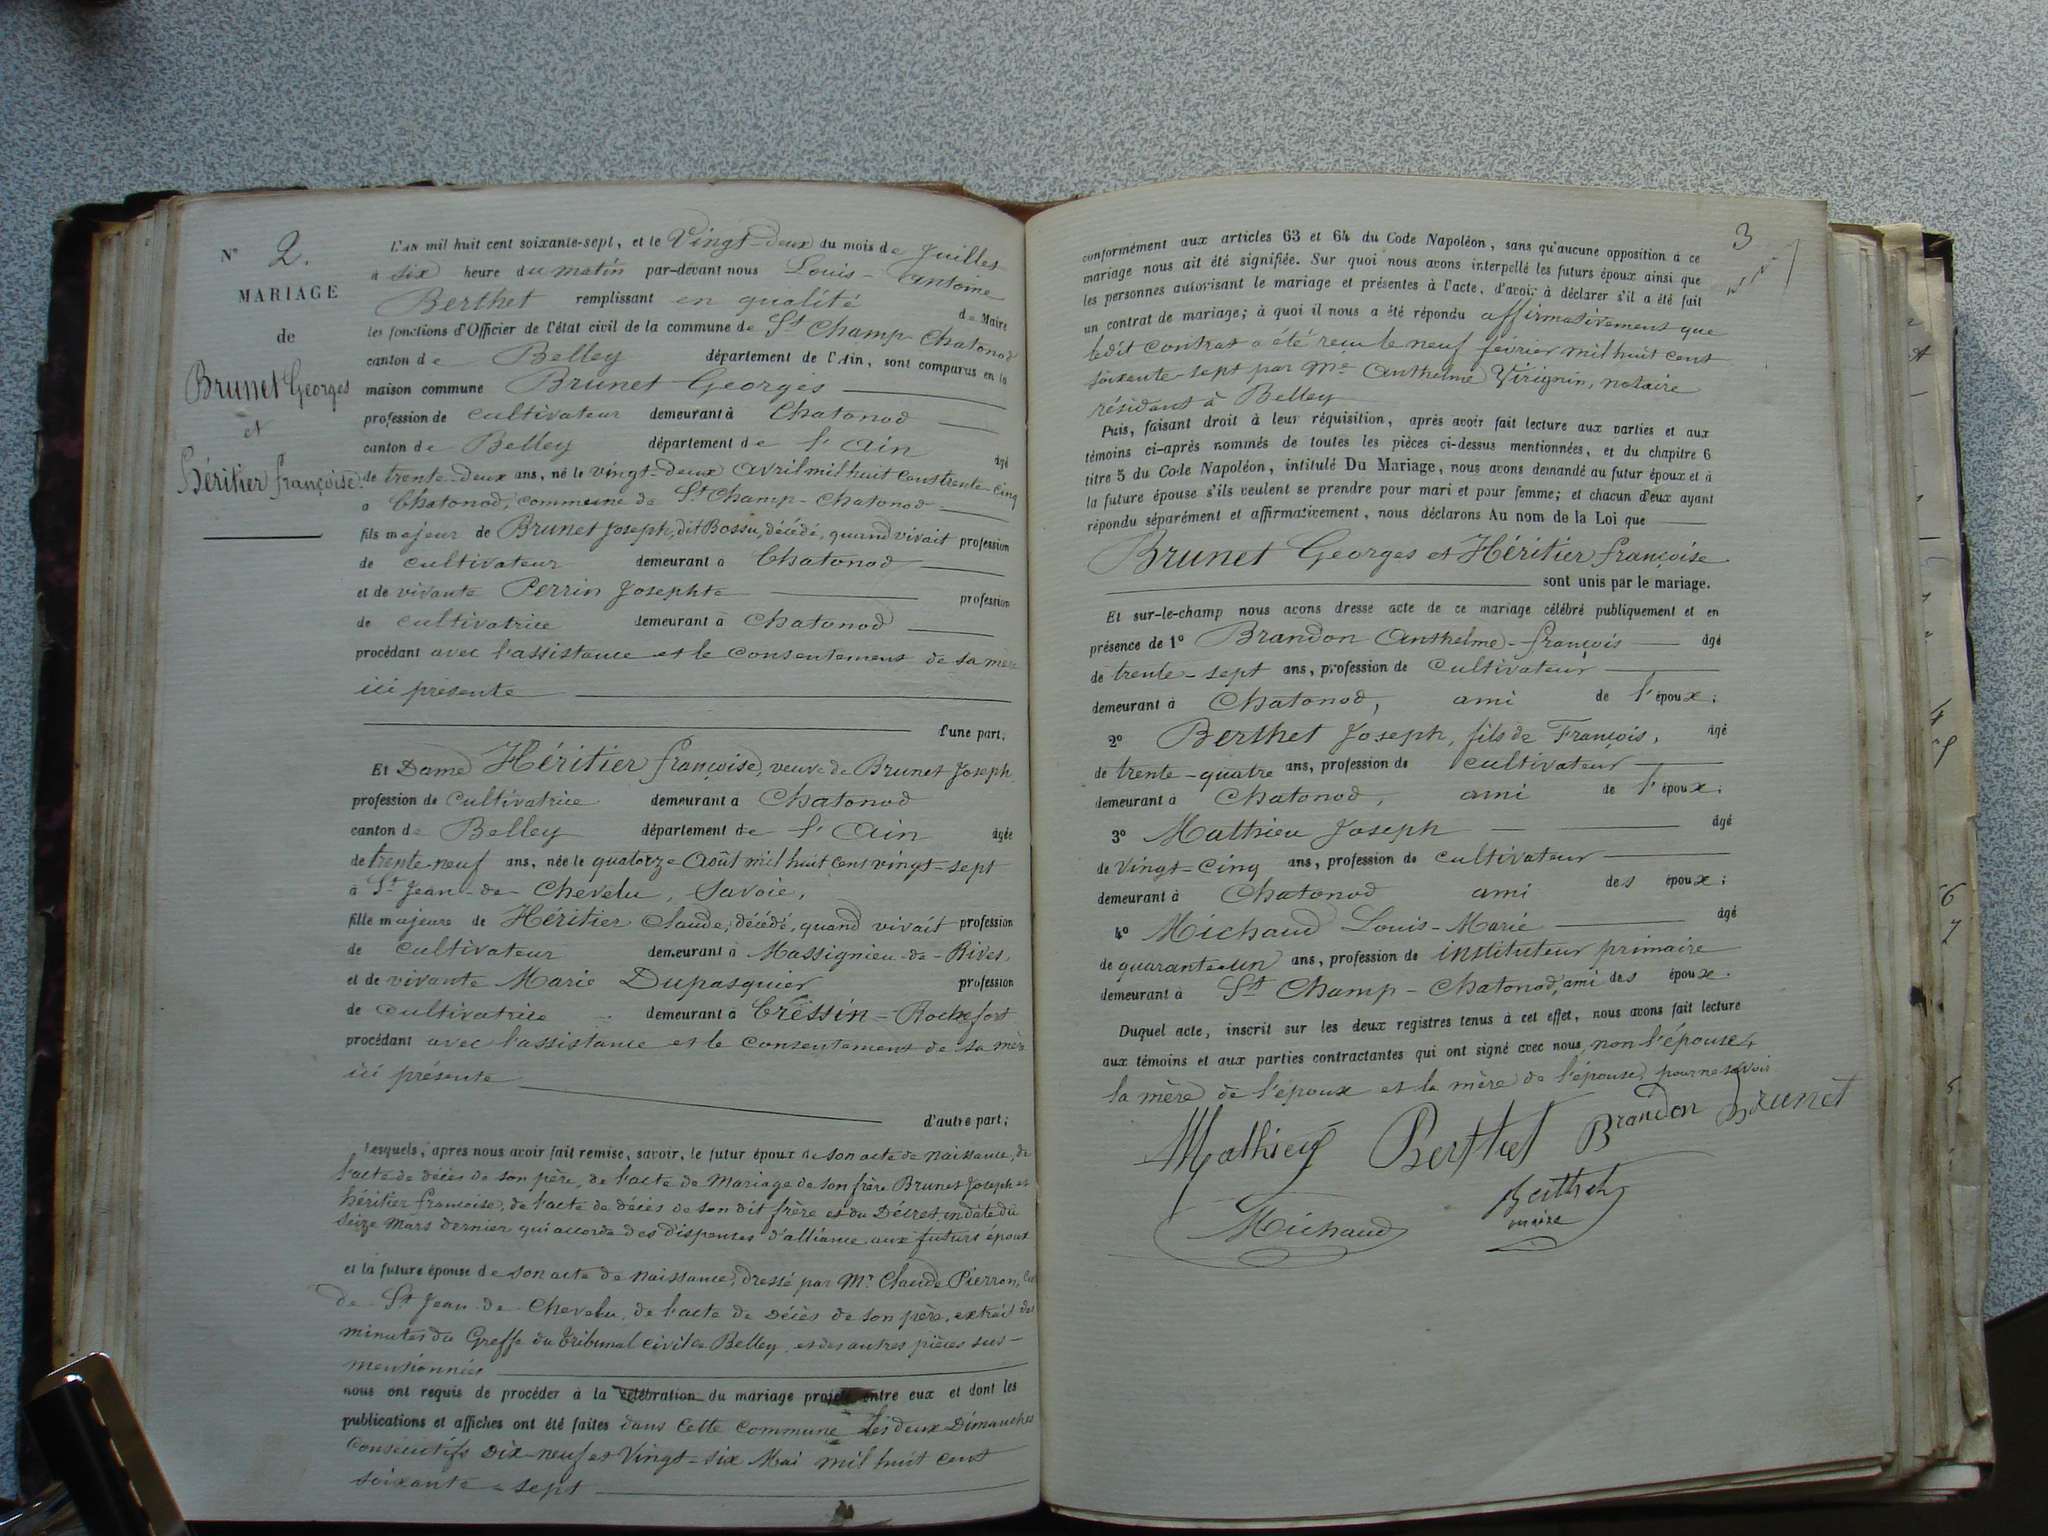 N° 2.
MARIAGE
de
Brunet Georges
et
Héritier françoise.
L'AN mil huit cent soixante-sept, et le Vingt-deux du mois de Juillet
à six heure du matin par-devant nous Louis-Antoine
Berthet remplissant en qualité de Maire
les fonctions d'Officier de l'état civil de la commune de St Champ-Chatonod
canton de Belley département de l'Ain, sont comparus en la
maison commune Brunet Georges
profession de cultivateur demeurant à Chatonod
canton de Belley département de l'Ain âgé
de trente-deux ans, né le vingt-deux Avril mil huit cent trente-cinq
à Chatonod, commune de St Champ-Chatonod
fils majeur de Brunet Joseph, dit Bossu, décédé, quand vivait profession
de cultivateur demeurant à Chatonod
et de vivante Perrin Josephte profession
de cultivatrice demeurant à Chatonod
procédant avec l'assistance et le consentement de sa mère
ici présente
d'une part;
Et Dame Héritier françoise, veuve de Brunet Joseph,
profession de cultivatrice demeurant à Chatonod
canton de Belley département de l'Ain âgée
de trente-neuf ans, née le quatorze Août mil huit cent vingt-sept
à St Jean-de-Chevelu, Savoie,
fille majeure de Héritier Claude, décédé, quand vivait profession
de cultivateur demeurant à Massignieu-de-Rives,
et de vivante Marie Dupasquier profession
de cultivatrice demeurant à Cressin-Rochefort
procédant avec l'assistance et le consentement de sa mère
ici présente
d'autre part;
Lesquels, après nous avoir fait remise, savoir, le futur époux de son acte de naissance, de
l'acte de décès de son père, de l'acte de Mariage de son frère Brunet Joseph et
héritier françoise, de l'acte de décès de son dit frère et du Décret, en date du
seize Mars dernier qui accorde des dispenses d'alliance aux futurs époux
et la future épouse de son acte de naissance, dressé par Mr Claude Pierron,
de St Jean de Chevelu, de l'acte de décès de son père, extrait des
minutes du Greffe du tribunal civil de Belley, et des autres pièces sus-
mentionnées
nous ont requis de procéder à la célébration du mariage projeté entre eux et dont les
publications et affiches ont été faites dans cette commune les deux Dimanches
consécutifs Dix-neuf et Vingt-six Mai mil huit cent
soixante-sept
3
conformément aux articles 63 et 64 du Code Napoléon, sans qu'aucune opposition à ce
mariage nous ait été signifiée. Sur quoi nous avons interpellé les futurs époux ainsi que
les personnes autorisant le mariage et présentes à l'acte, d'avoir à déclarer s'il a été fait
un contrat de mariage; à quoi il nous a été répondu affirmativement que
ledit contrat a été reçu le neuf février mil huit cent
soixante-sept par Me Anthelme Virignin, notaire
résidant à Belley
Puis, faisant droit à leur réquisition, après avoir fait lecture aux parties et aux
témoins ci-après nommés de toutes les pièces ci-dessus mentionnées, et du chapitre 6
titre 5 du Code Napoléon, intitulé Du Mariage, nous avons demandé au futur époux et à
la future épouse s'ils veulent se prendre pour mari et pour femme; et chacun d'eux ayant
répondu séparément et affirmativement, nous déclarons Au nom de la Loi que
Brunet Georges et Héritier françoise
sont unis par le mariage.
Et sur-le-champ nous avons dressé acte de ce mariage célébré publiquement et en
présence de 1° Brandon Anthelme-françois âgé
de trente-sept ans, profession de cultivateur
demeurant à Chatonod, ami de l'époux;
2° Berthet Joseph, fils de François, âgé
de trente-quatre ans, profession de cultivateur
demeurant à Chatonod, ami de l'époux;
3° Mathieu Joseph âgé
de vingt-cinq ans, profession de cultivateur
demeurant à Chatonod ami des époux;
4° Michaud Louis-Marie âgé
de quarante-un ans, profession de instituteur primaire
demeurant à St Champ-Chatonod, ami des époux.
Duquel acte, inscrit sur les deux registres tenus à cet effet, nous avons fait lecture
aux témoins et aux parties contractantes qui ont signé avec nous, non l'épouse,
la mère de l'époux et la mère de l'épouse, pour ne savoir
Mathieu Berthet Brandon Brunet
Michaud Berthet
maire